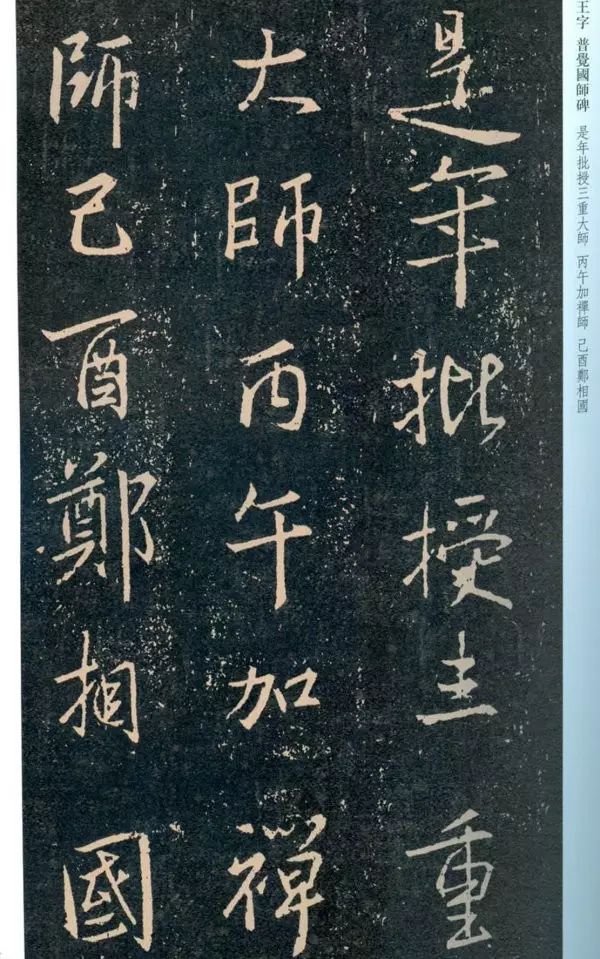 王字 普覺國師碑 是年批授三重大師 丙午加禪師 己酉鄭相國
是年批授主重
大師丙午加禪
師己酉鄭相國